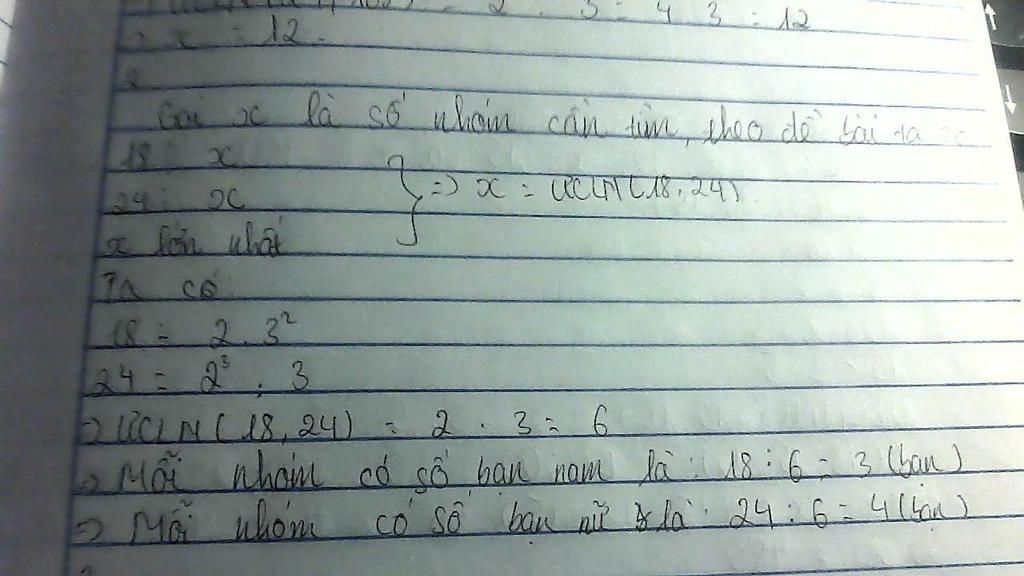 = 2 . 3 = 4 . 3 = 12
=> x = 12.
2
Gọi x là số nhóm cần tìm, theo đề bài ta
18 x
24 : x } => x = ƯCLN(18, 24)
x lớn nhất
Ta có
18 = 2 . 3²
24 = 2³ . 3
=> ƯCLN(18, 24) = 2 . 3 = 6
=> Mỗi nhóm có số bạn nam là : 18 : 6 = 3 (bạn)
=> Mỗi nhóm có số bạn nữ là : 24 : 6 = 4 (bạn)